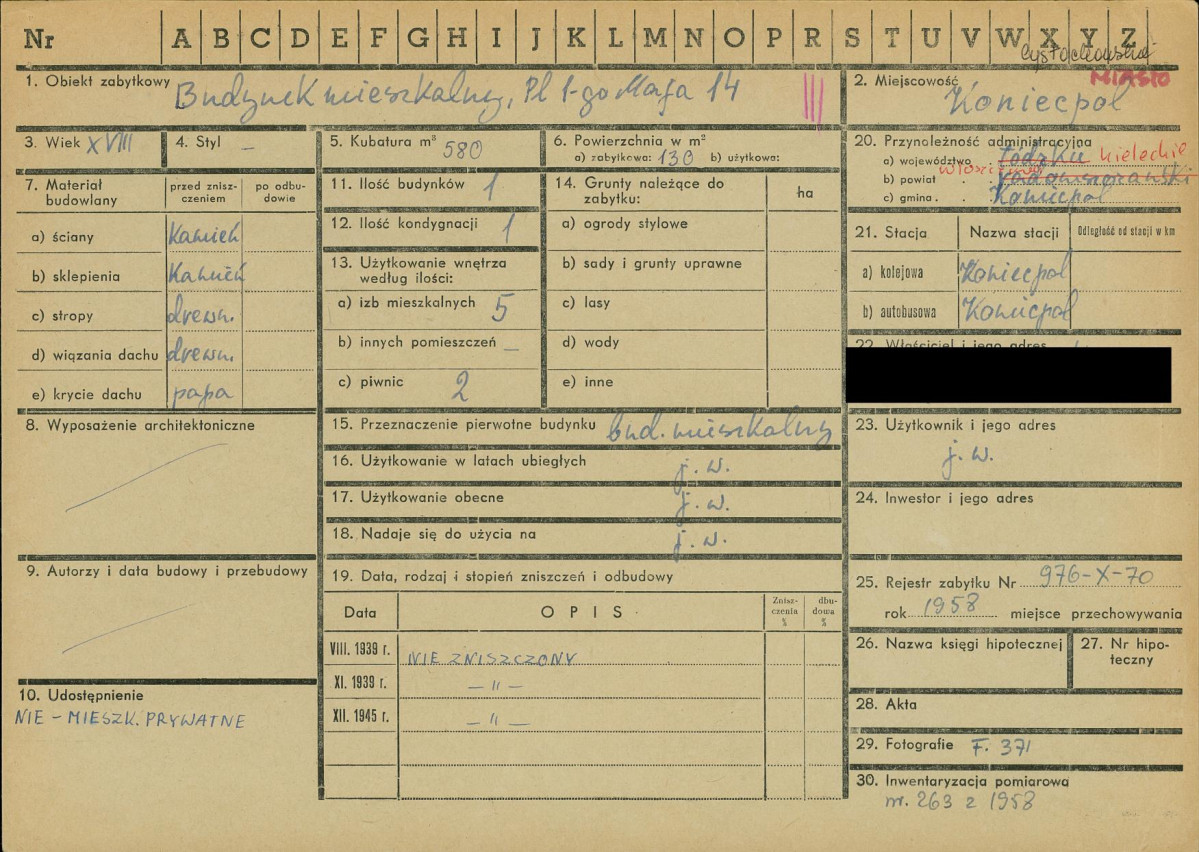 Nr A B C D E F G H I J K L M N O P R S T U V W X Y Z
MIASTO
1. Obiekt zabytkowy Budynek mieszkalny, Pl 1-go Maja 14 III
2. Miejscowość Koniecpol
3. Wiek XVIII
4. Styl –
5. Kubatura m³ 580
6. Powierzchnia w m²
a) zabytkowa: 130 b) użytkowa:
20. Przynależność administracyjna
a) województwo łódzkie kieleckie
b) powiat radomszczański
c) gmina Koniecpol
7. Materiał budowlany
przed zniszczeniem
po odbudowie
a) ściany Kamień
b) sklepienia Kamień
c) stropy drewn.
d) wiązania dachu drewn.
e) krycie dachu papa
11. Ilość budynków 1
12. Ilość kondygnacji 1
13. Użytkowanie wnętrza
według ilości:
a) izb mieszkalnych 5
b) innych pomieszczeń –
c) piwnic 2
14. Grunty należące do
zabytku:
ha
a) ogrody stylowe
b) sady i grunty uprawne
c) lasy
d) wody
e) inne
21. Stacja Nazwa stacji Odległość od stacji w km
a) kolejowa Koniecpol
b) autobusowa Koniecpol
22. Właściciel i jego adres
8. Wyposażenie architektoniczne
15. Przeznaczenie pierwotne budynku bud. mieszkalny
16. Użytkowanie w latach ubiegłych j. w.
17. Użytkowanie obecne j. w.
18. Nadaje się do użycia na j. w.
23. Użytkownik i jego adres
j. w.
24. Inwestor i jego adres
9. Autorzy i data budowy i przebudowy
19. Data, rodzaj i stopień zniszczeń i odbudowy
Data OPIS Zniszczenia % dbudowa %
VIII. 1939 r. NIE ZNISZCZONY
XI. 1939 r. – " –
XII. 1945 r. – " –
10. Udostępnienie
NIE – MIESZK. PRYWATNE
25. Rejestr zabytku Nr 976-X-70
rok 1958 miejsce przechowywania
26. Nazwa księgi hipotecznej
27. Nr hipoteczny
28. Akta
29. Fotografie F. 371
30. Inwentaryzacja pomiarowa
nr. 263 z 1958